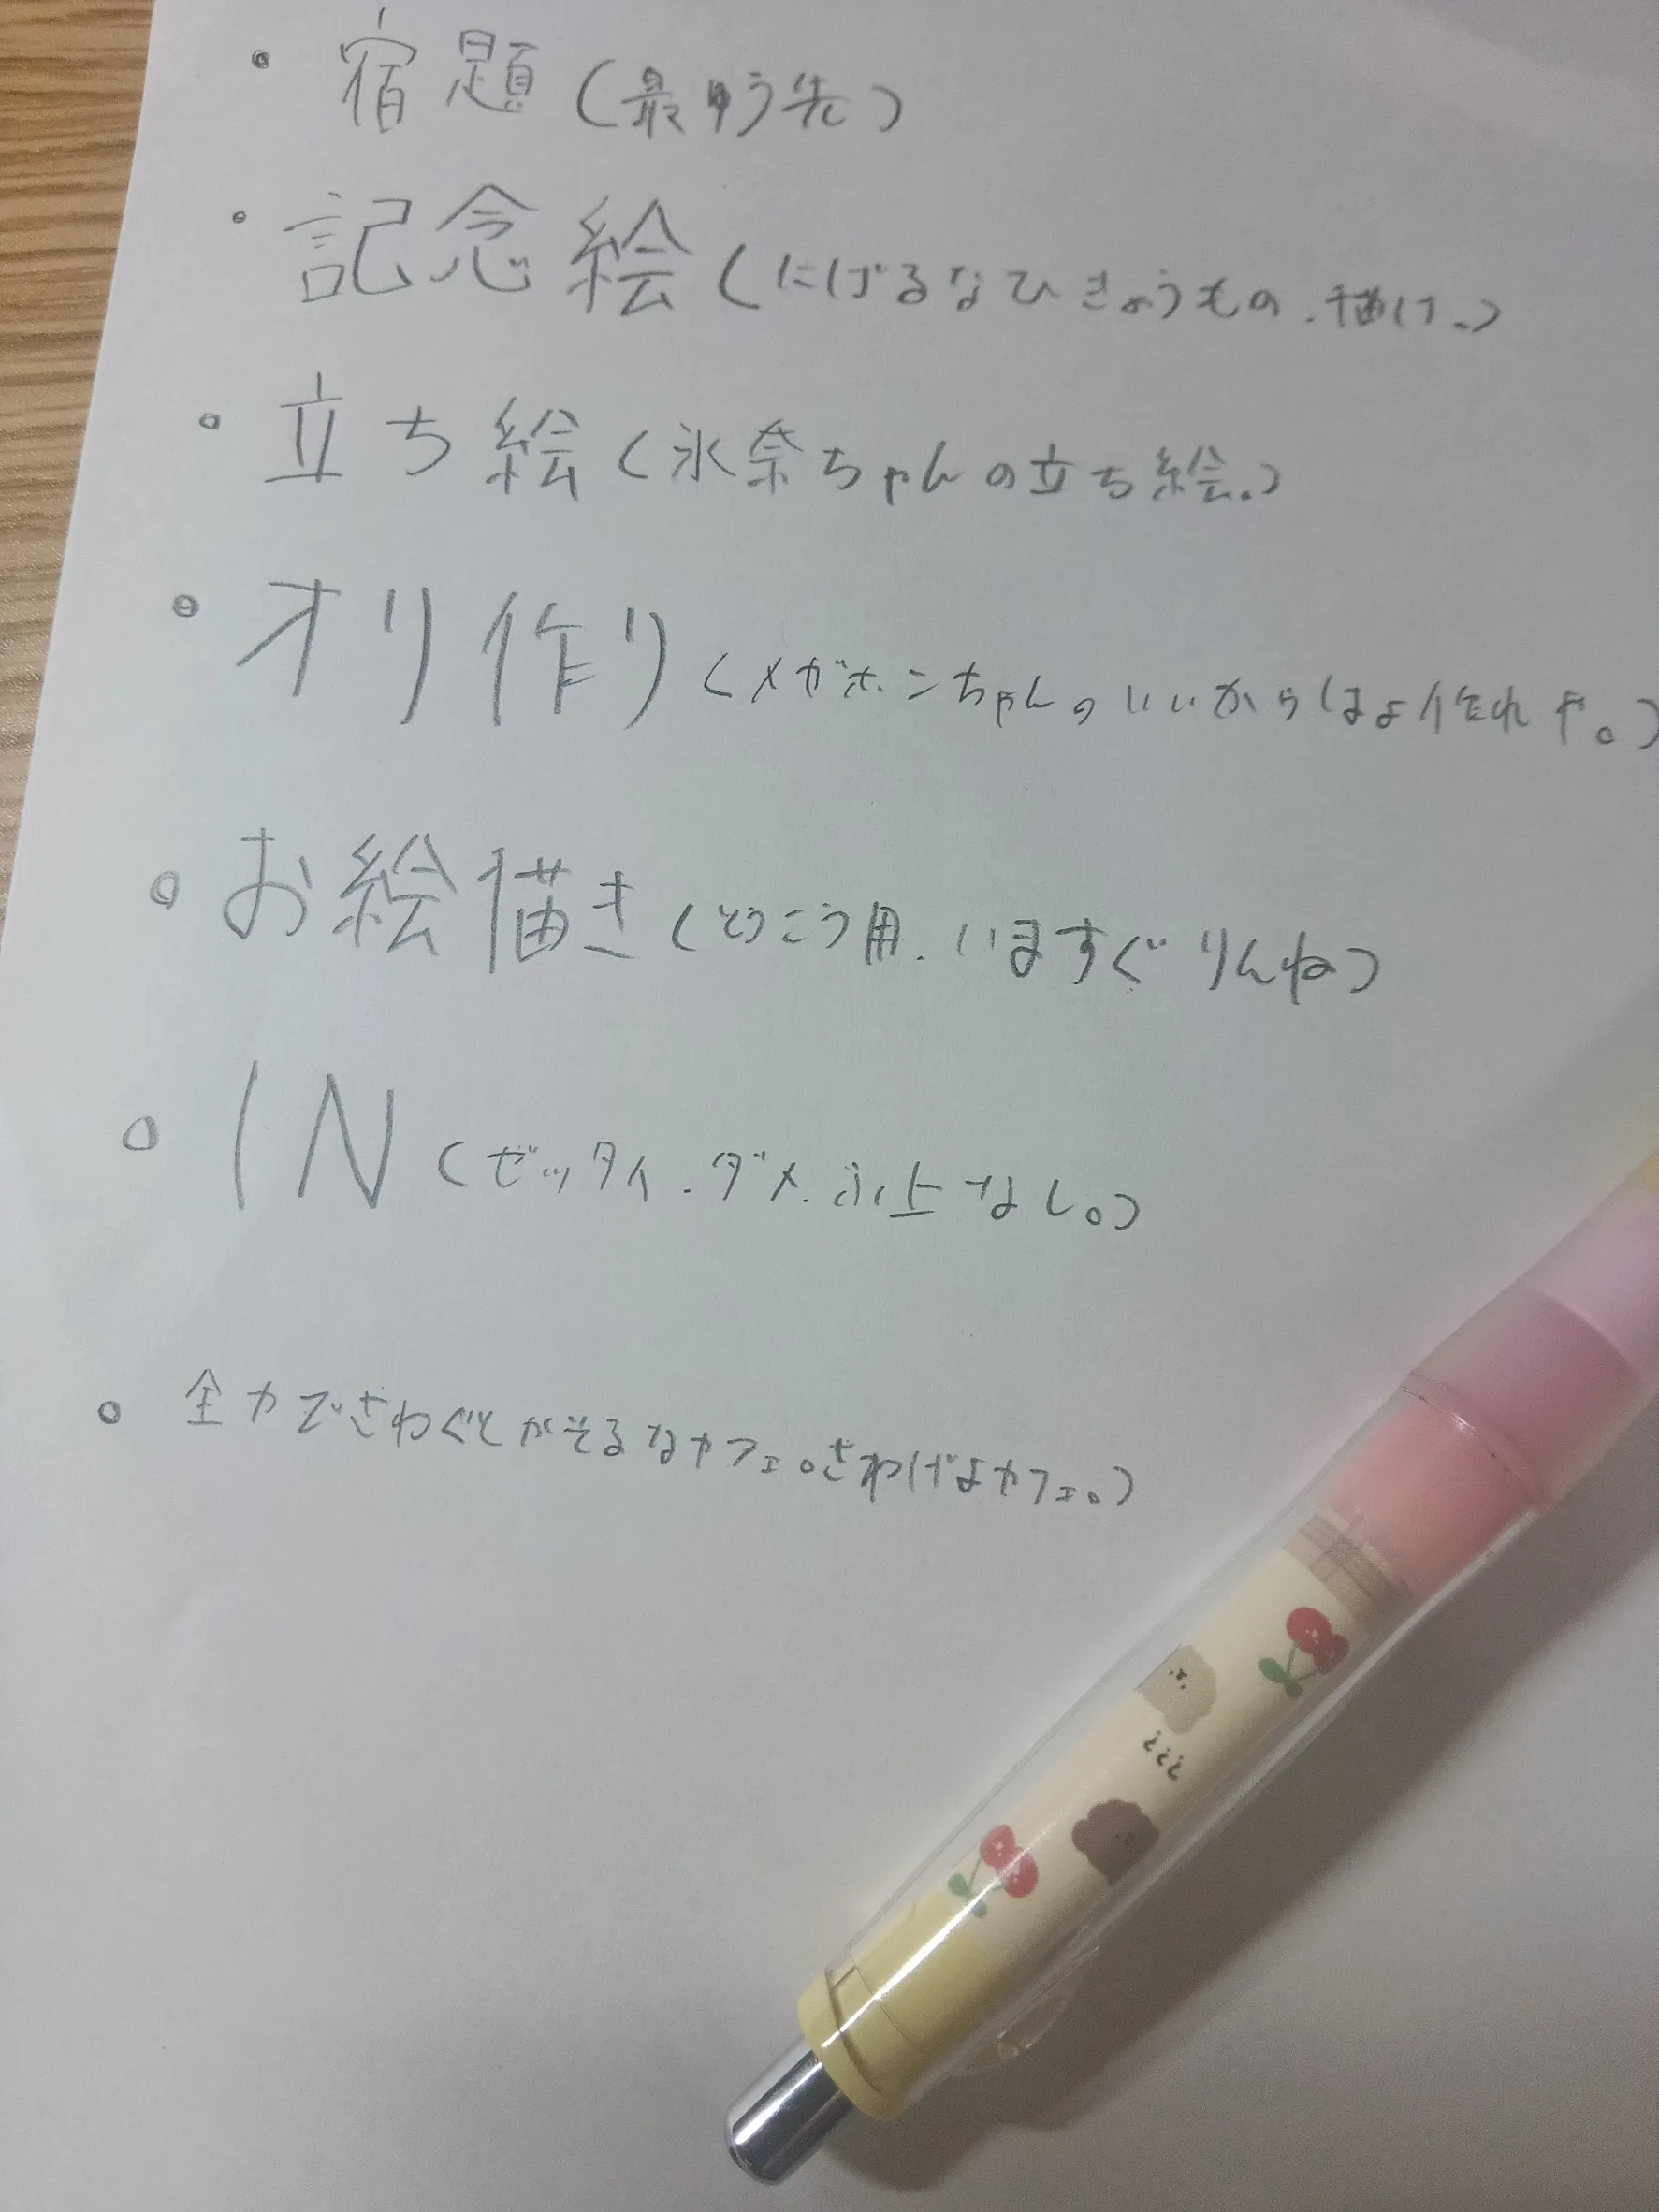 ・宿題(最ゆう先)
・記念絵(にげるなひきょうもの.描け。)
・立ち絵(氷奈ちゃんの立ち絵。)
・オリ作り(メガホンちゃんのいいからはよ作れや。)
・お絵描き(とうこう用.いますぐりんね)
・IN(ゼッタイ.ダメ.ふ上なし。)
・全力でさわぐとがそるなカフェ。さわげよカフェ。)